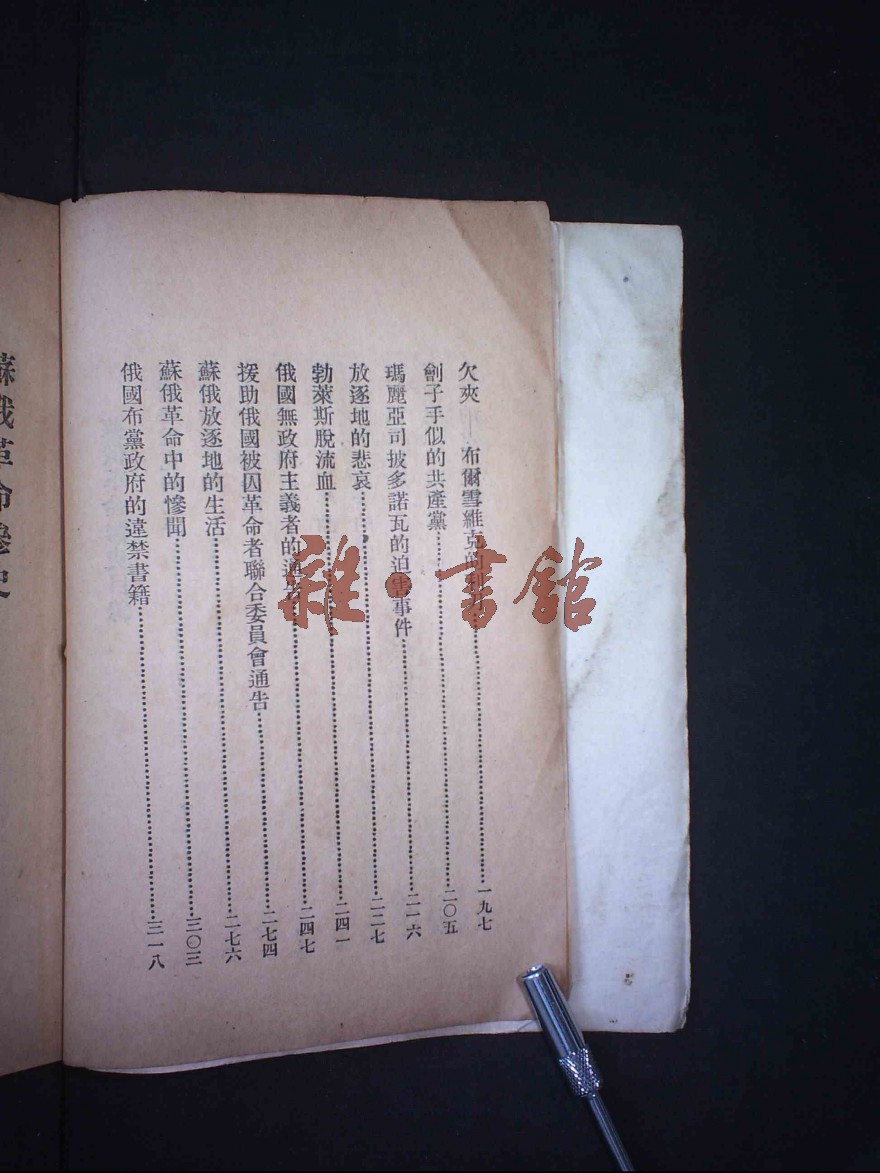 欠夾——布爾雪維克的利……一九七
劊子手似的共產黨……二〇五
瑪麗亞司披多諾瓦的迫害事件……二一六
放逐地的悲哀……二二七
勃萊斯脫流血……二四一
俄國無政府主義者的通……二四七
援助俄國被囚革命者聯合委員會通告……二七四
蘇俄放逐地的生活……二七六
蘇俄革命中的慘聞……三〇三
俄國布黨政府的違禁書籍……三一八
蘇俄革命慘史
雜·書館